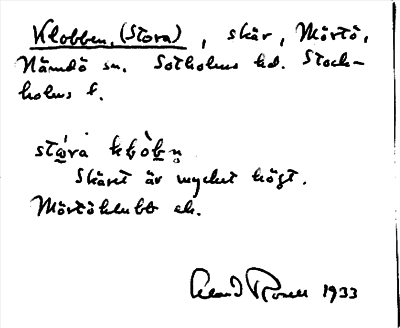 Klobben, (Stora), skär, Mörtö,
Nämdö sn. Sotholms hd. Stock-
holms l.
stὼra kḷòbn̥
Skäret är mycket högt.
Mörtöklubb ek.
1933